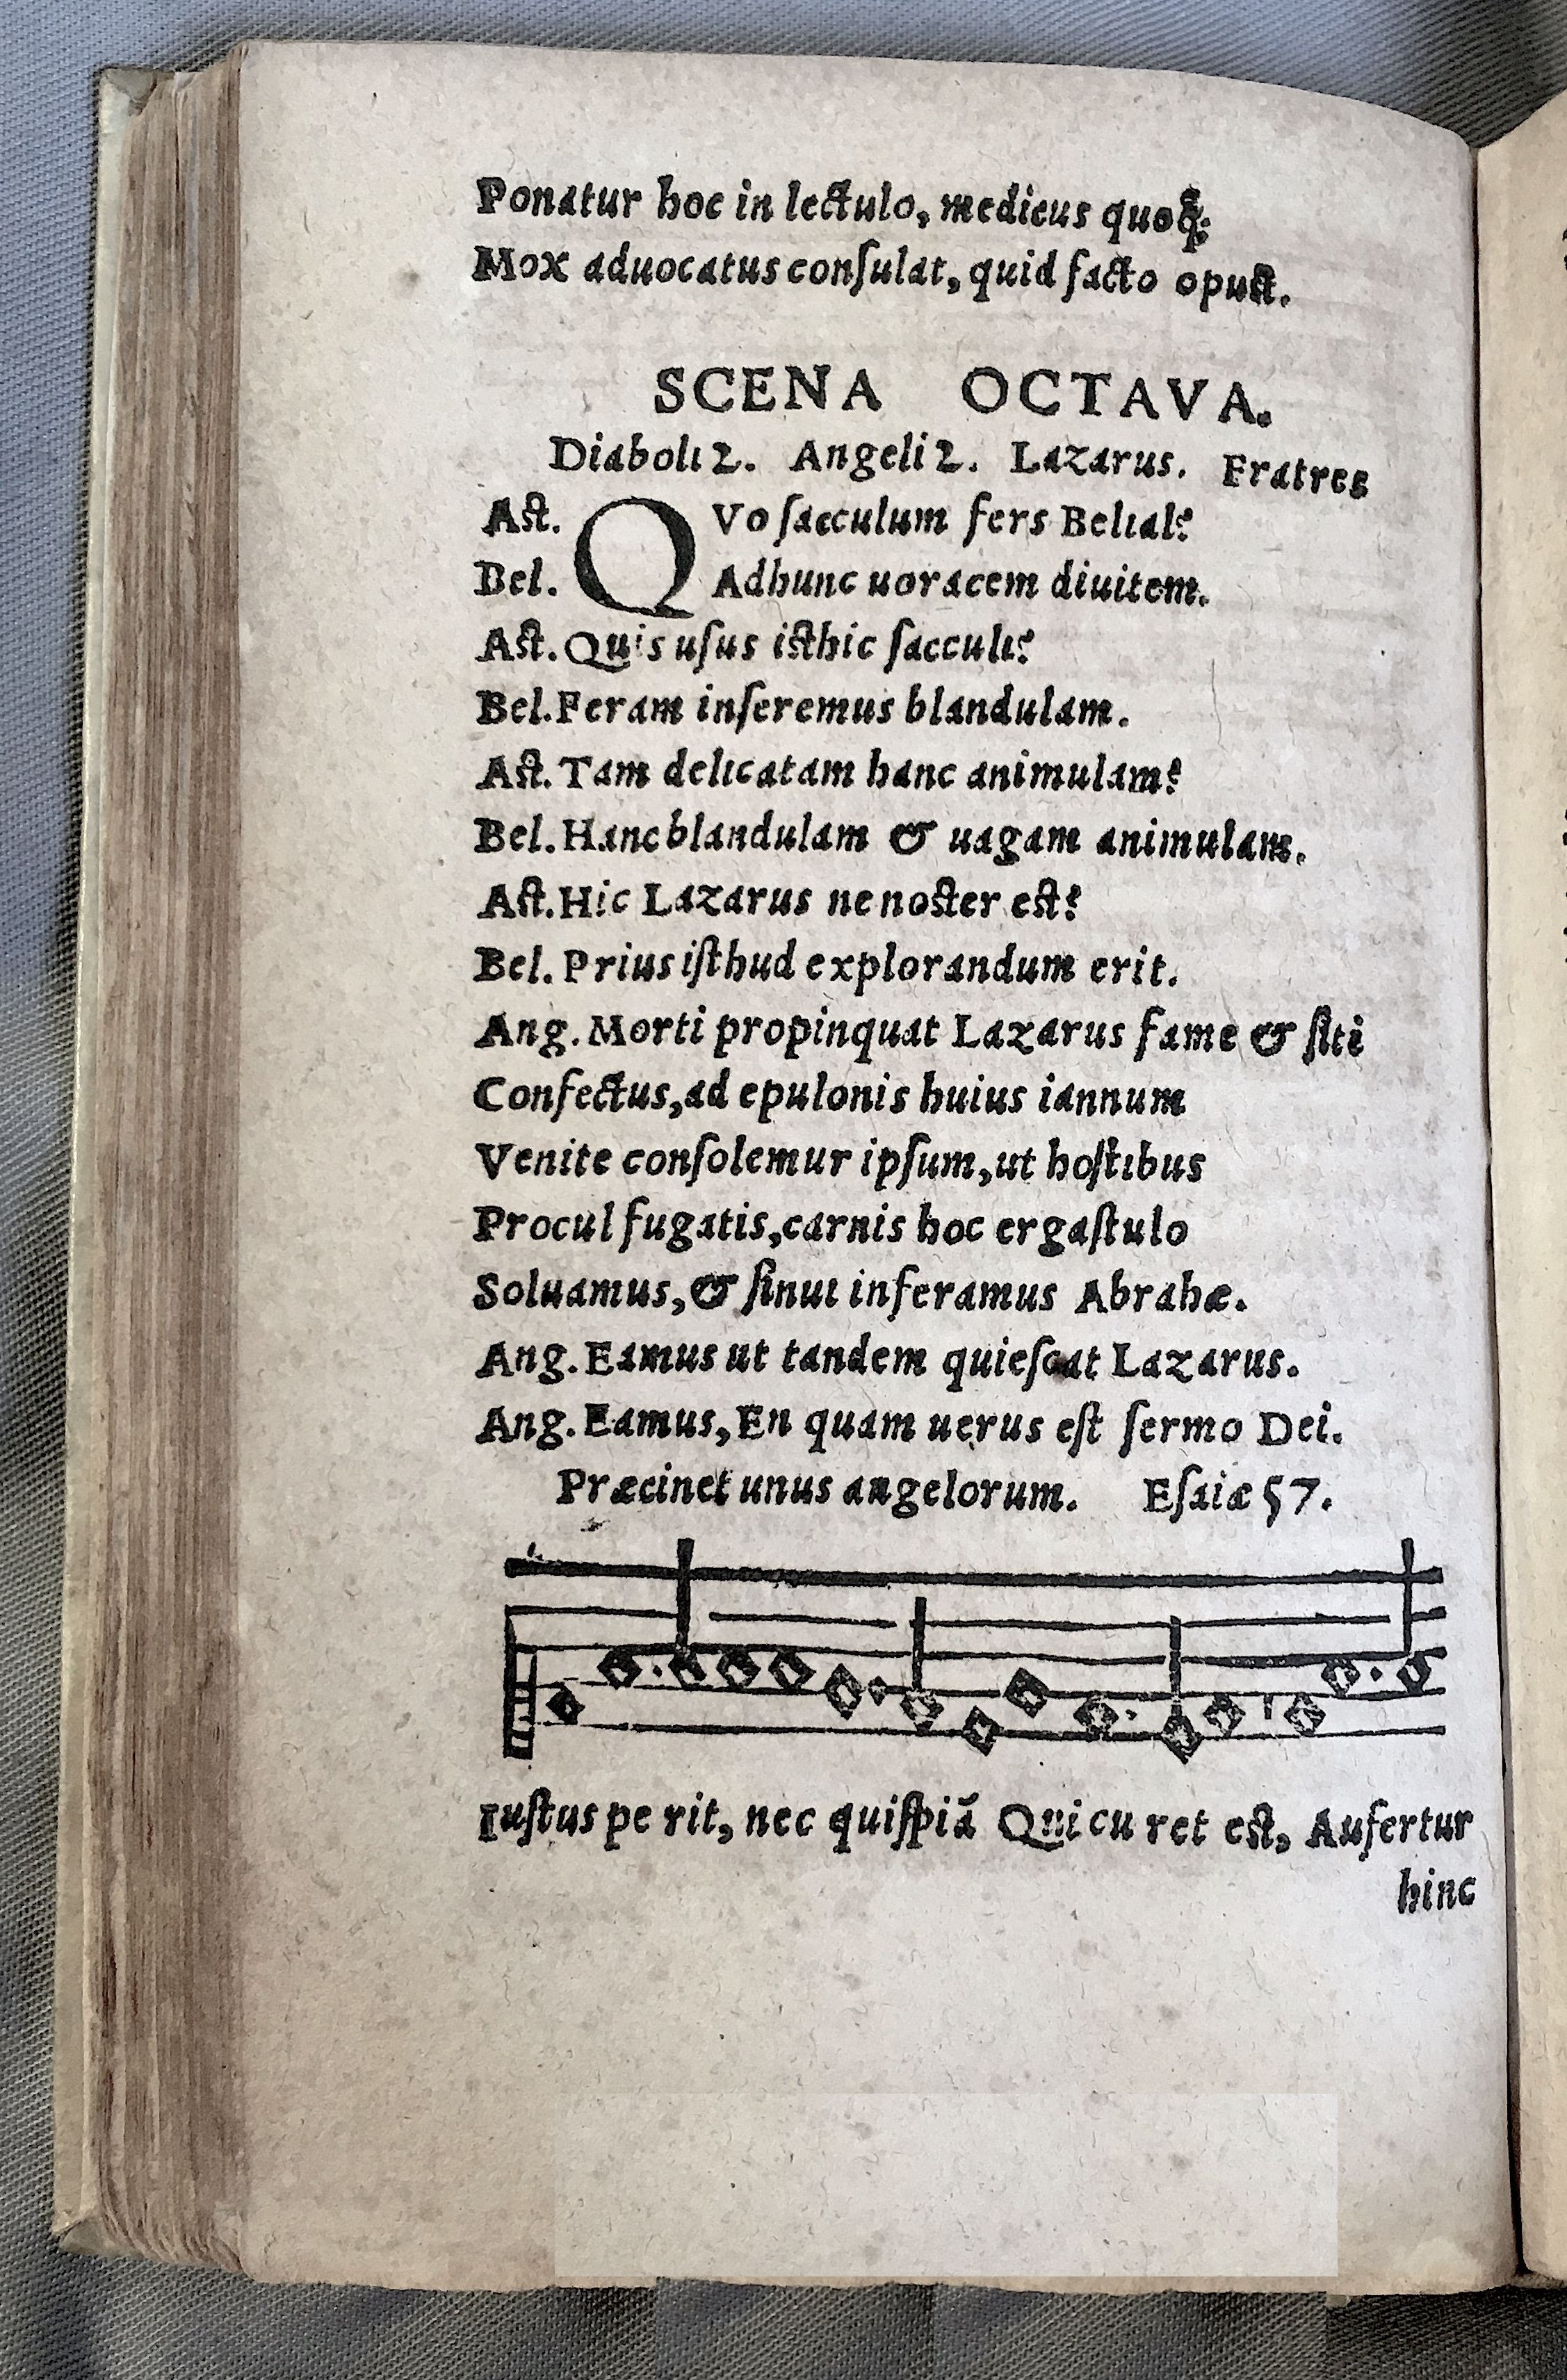 Ponatur hoc in lectulo, medicus quoq́;
Mox aduocatus conſulat, quid facto opuſt.
SCENA OCTAVA.
Diaboli 2. Angeli 2. Lazarus. Fratres
Aſt. QVo ſacculum fers Belial?
Bel. Adhunc uoracem diuitem.
Aſt. Quis uſus iſthic ſacculi?
Bel. Feram inſeremus blandulam.
Aſt. Tam delicatam hanc animulam?
Bel. Hanc blandulam & uagam animulam.
Aſt. Hic Lazarus ne noſter eſt?
Bel. Prius iſthud explorandum erit.
Ang. Morti propinquat Lazarus fame & ſiti
Confectus, ad epulonis huius iannum
Venite conſolemur ipſum, ut hoſtibus
Procul fugatis, carnis hoc ergaſtulo
Soluamus, & ſinui inferamus Abrahæ.
Ang. Eamus ut tandem quieſcat Lazarus.
Ang. Eamus, En quam uerus eſt ſermo Dei.
Præcinet unus angelorum. Eſaiæ 57.
Iuſtus pe rit, nec quiſpiã Qui cu ret eſt, Aufertur
hinc